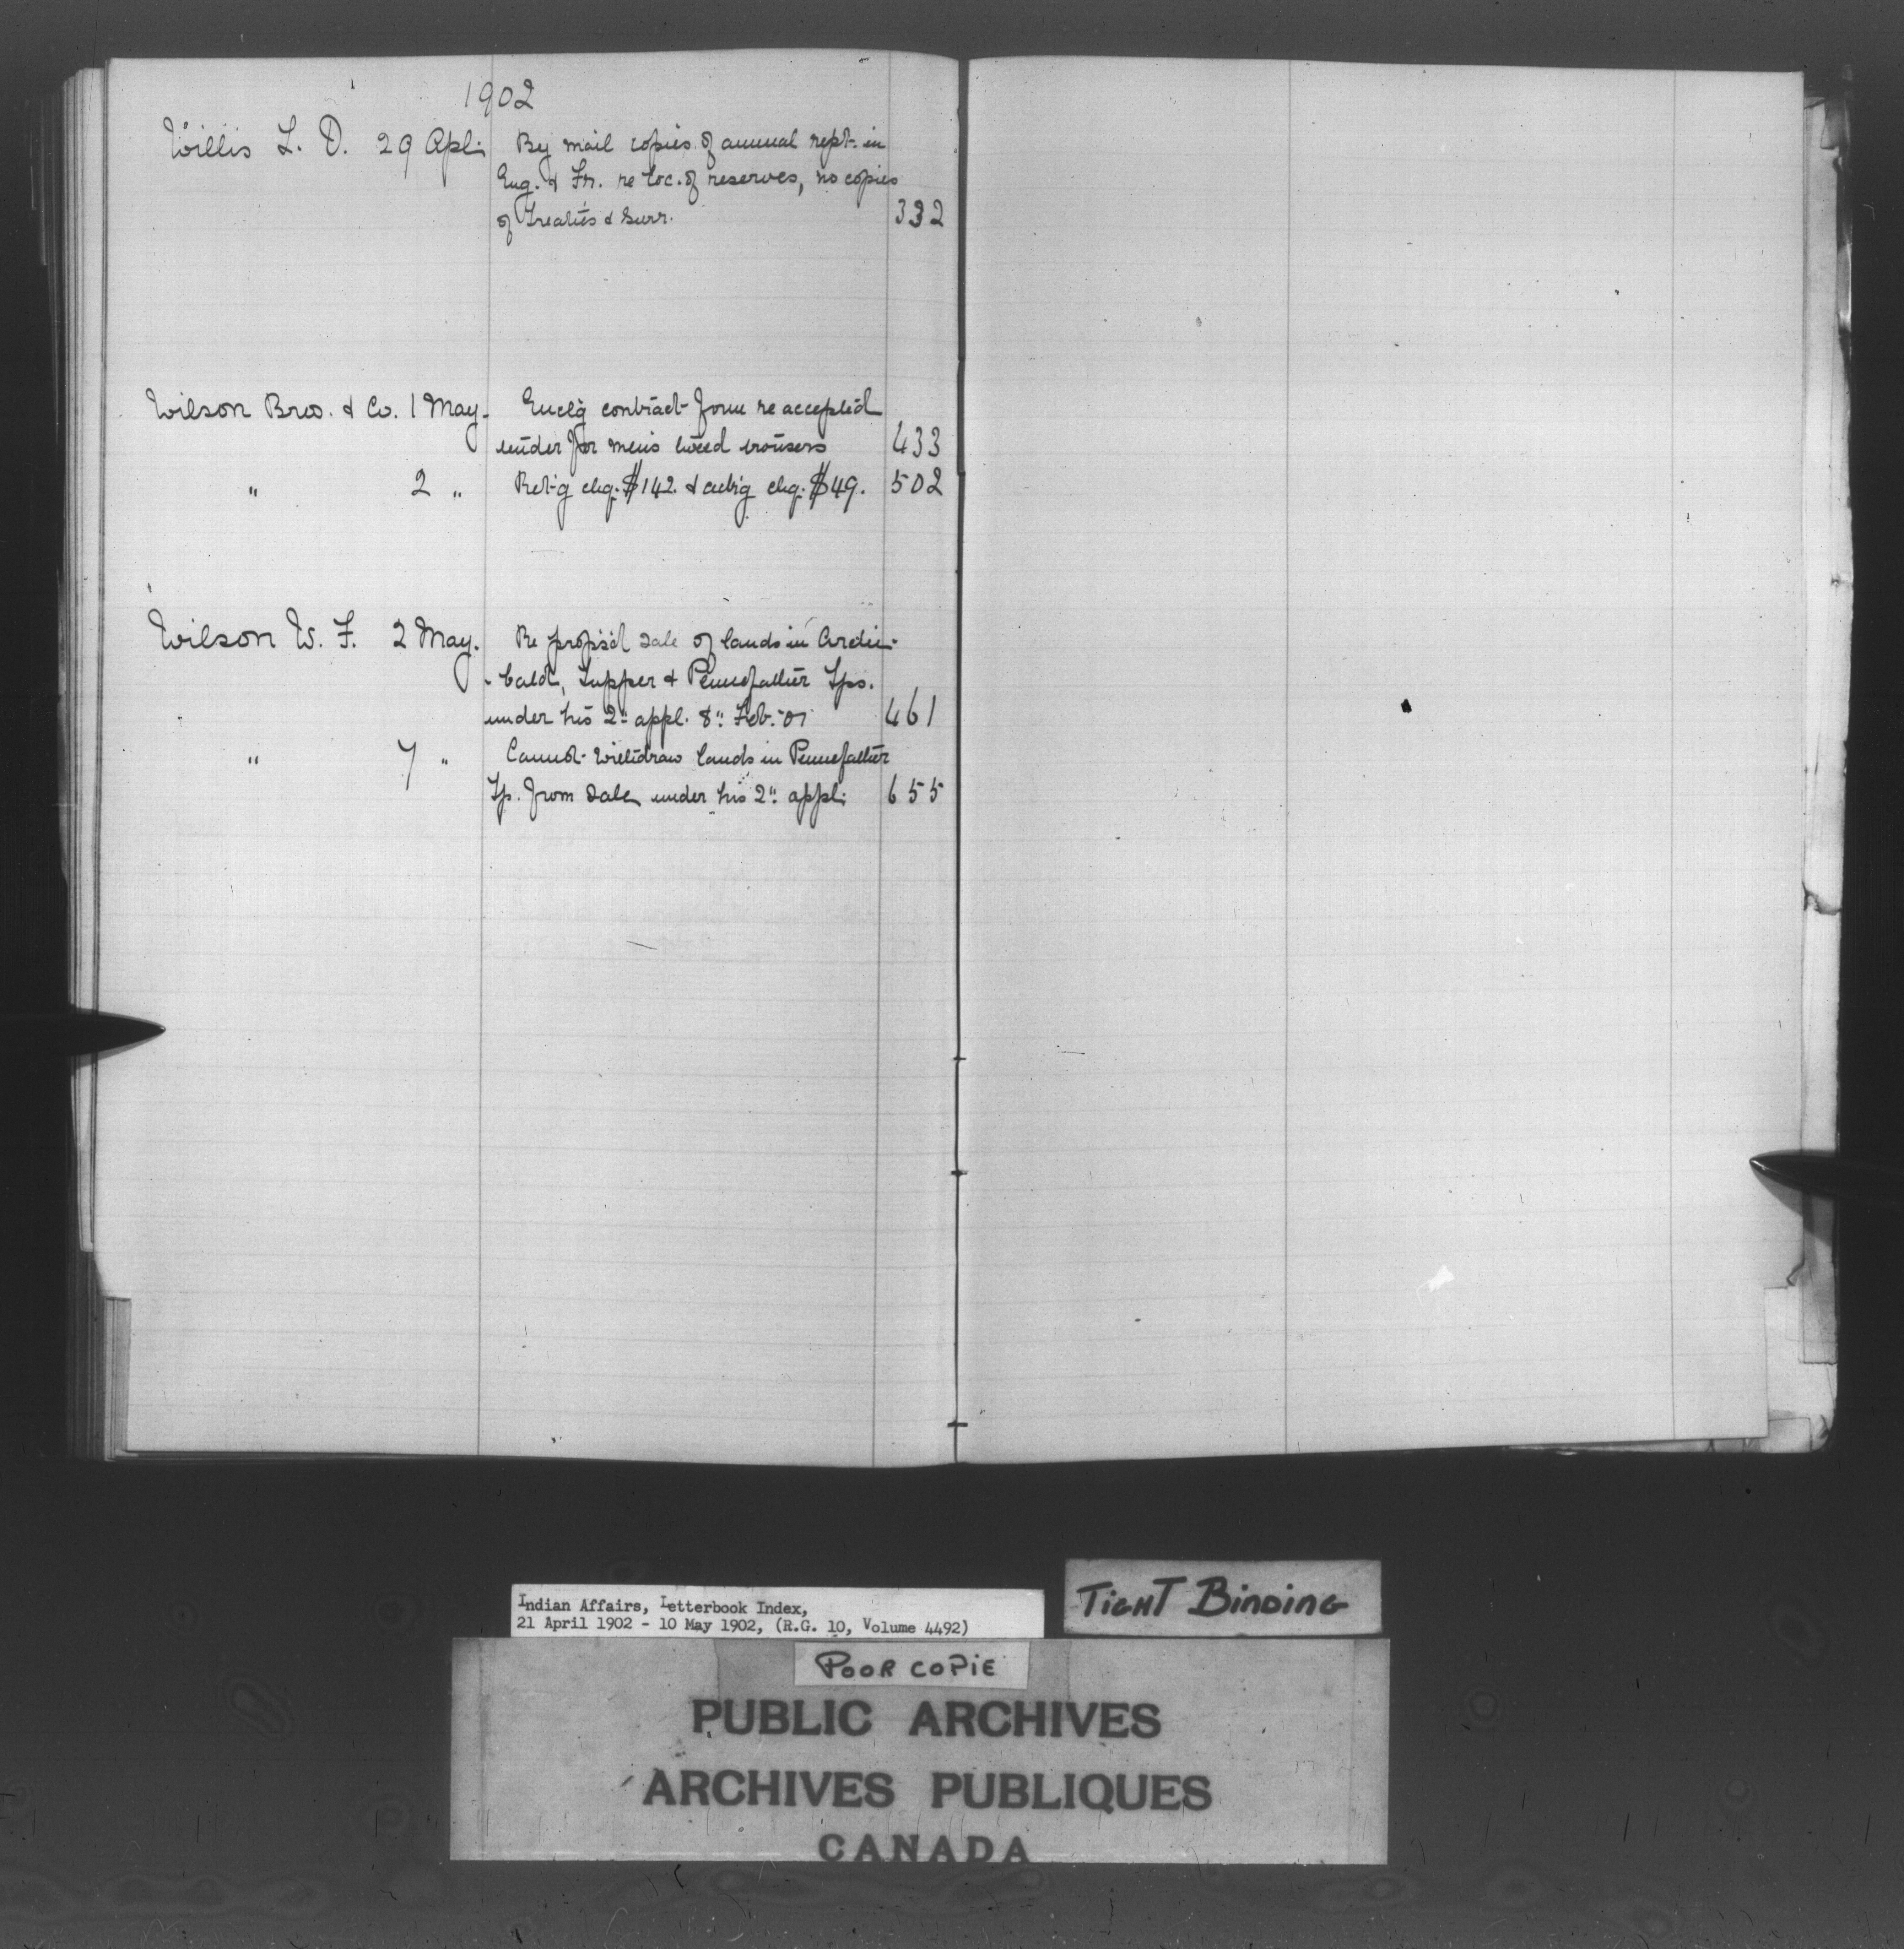 1902
Willis L. D. 29 Apl. By mail copies of annual rept. in
Eng. & Fr. re loc. of reserves, no copies
of Treaties & Surr. 332
Wilson Bros. & Co. 1 May. Encl'g contract form re accepted
tender for men's tweed trousers 433
" 2 " Ret'g chq. $142. & ackn'g chq. $49. 502
Wilson W. F. 2 May. Re propos'd sale of lands in Archi-
- bald, Tupper & Pennefather Tps.
under his 2" appl. 8" Feb. '01 461
" 7 " Cannot withdraw lands in Pennefather
Tp. from sale under his 2" appl. 655
Indian Affairs, Letterbook Index,
21 April 1902 - 10 May 1902, (R.G. 10, Volume 4492)
TIGHT BINDING
POOR COPIE
PUBLIC ARCHIVES
ARCHIVES PUBLIQUES
CANADA